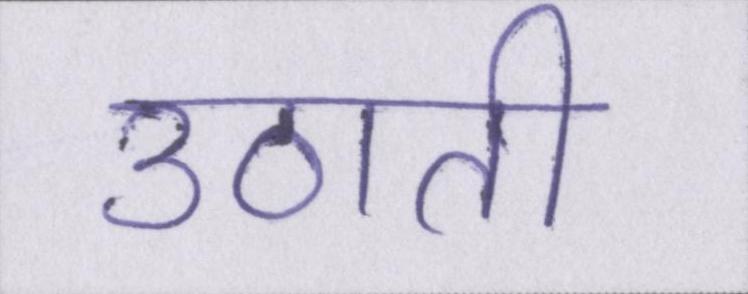 उठाती